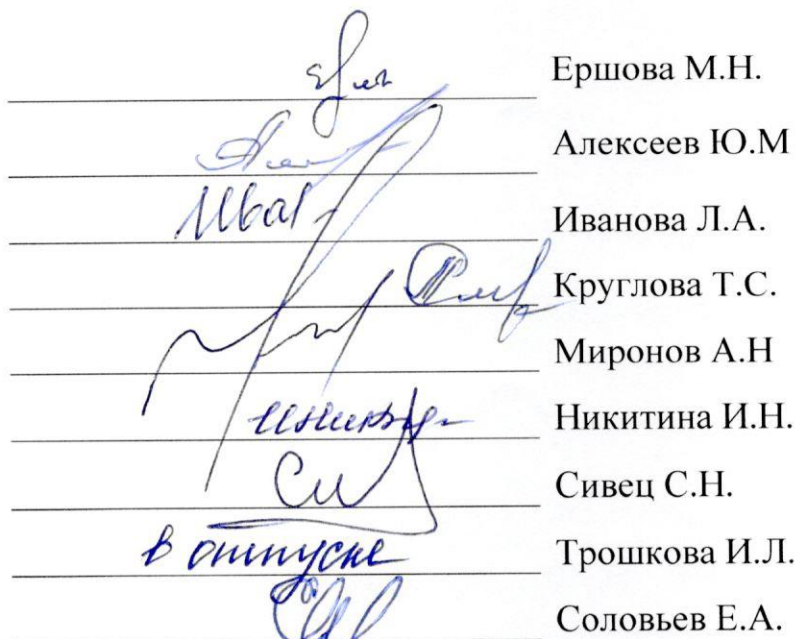 Ершова М.Н.
Алексеев Ю.М
Иванова Л.А.
Круглова Т.С.
Миронов А.Н
Никитина И.Н.
Сивец С.Н.
в отпуске Трошкова И.Л.
Соловьев Е.А.